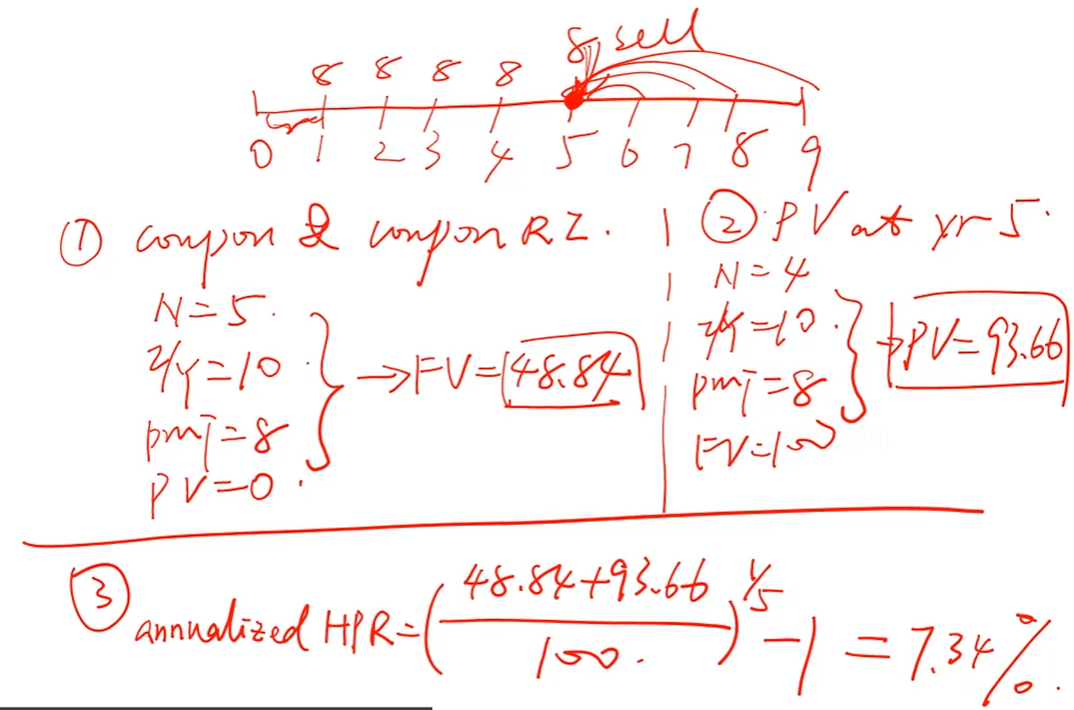 8 8 8 8 8 sell
0 1 2 3 4 5 6 7 8 9
① coupon & coupon RI.
N=5.
I/Y=10
pmT=8
PV=0.
→FV=48.84
② PV at yr 5.
N=4
I/Y=10.
pmT=8
FV=100
→PV=93.66
③ annualized HPR=(48.84+93.66/100.)^1/5-1=7.34%.